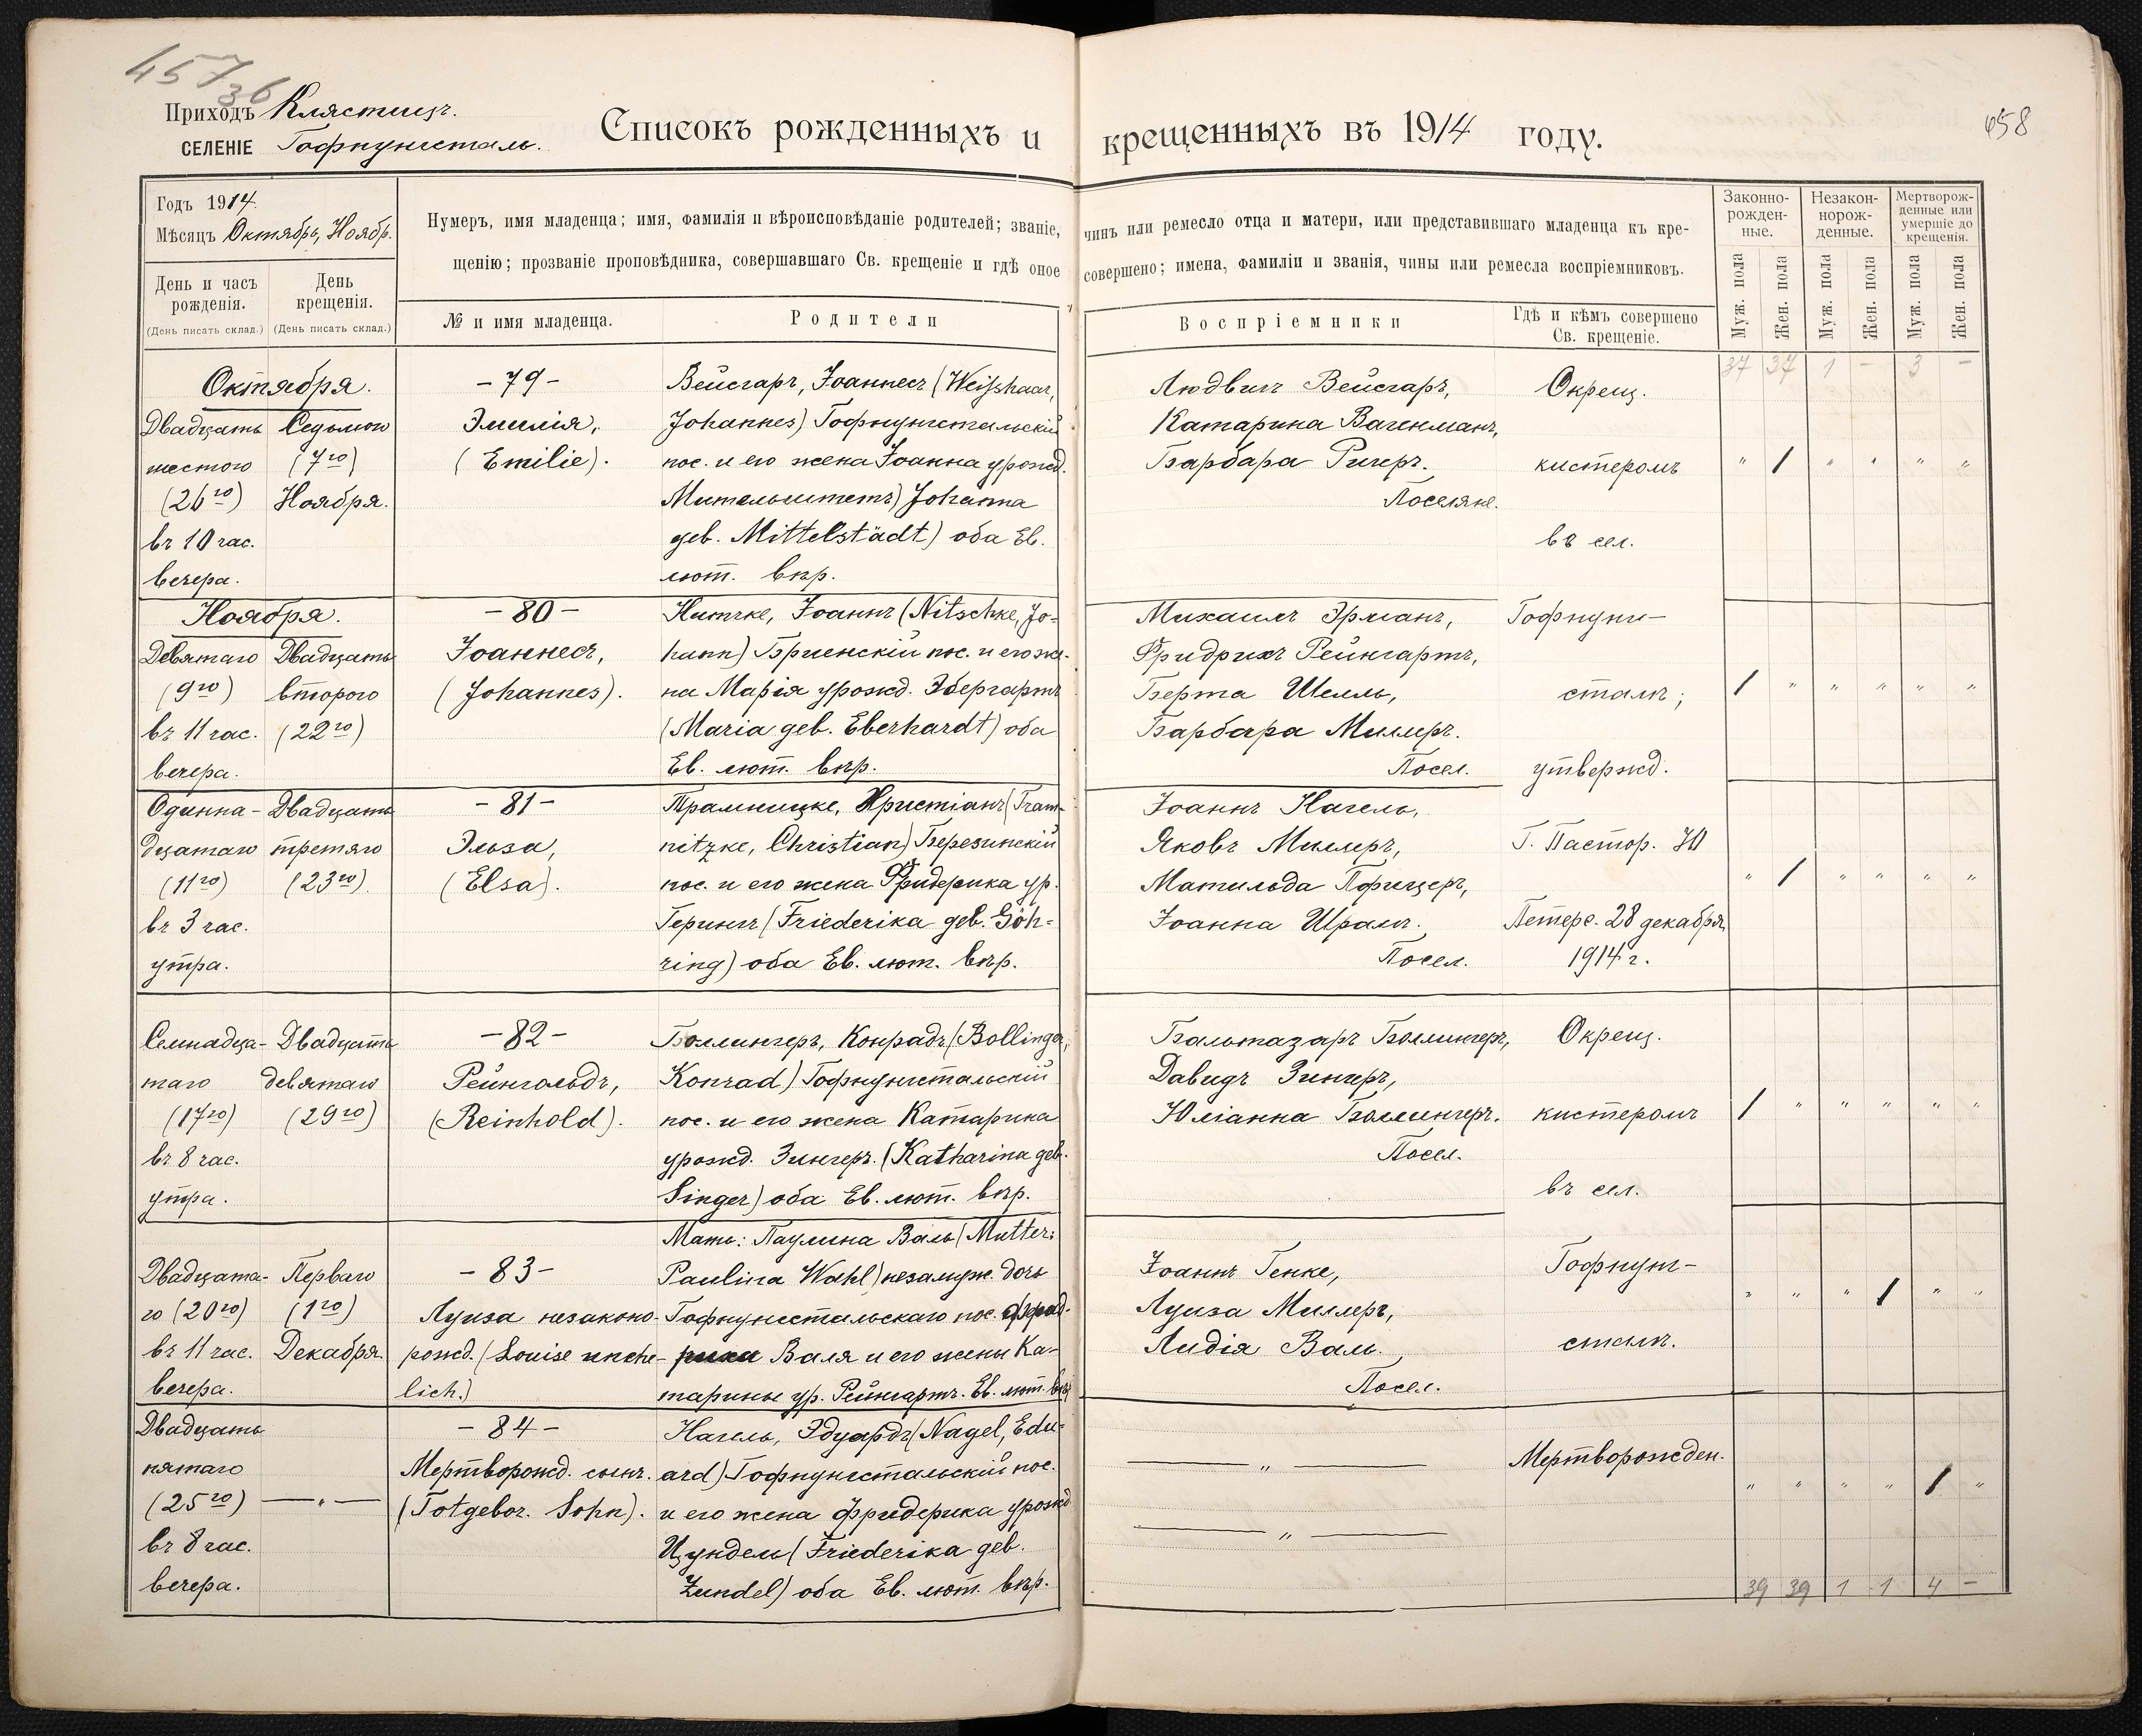 457
36
458
Приходъ Клястицъ.
СЕЛЕНІЕ Гофнунгсталь.
Списокъ рожденныхъ и крещенныхъ въ 1914 году.
Годъ 1914.
Мѣсяцъ Октябрь, Ноябр.
День и часъ рожденія.
(День писать склад.)
День крещенія.
(День писать склад.)
Нумеръ, имя младенца; имя, фамилія и вѣроисповѣданіе родителей; званіе, чинъ или ремесло отца и матери, или представившаго младенца къ кре-
щенію; прозваніе проповѣдника, совершавшаго Св. крещеніе и гдѣ оное совершено; имена, фамиліи и званія, чины или ремесла воспріемниковъ.
№ и имя младенца.
Родители
Воспріемники
Гдѣ и кѣмъ совершено Св. крещеніе.
Законно-
рожден-
ные.
Незакон-
норож-
денные.
Мертворож-
денные или
умершіе до
крещенія.
Муж. пола
Жен. пола
Муж. пола
Жен. пола
Муж. пола
Жен. пола
37 37 1 – 3 –
Октября.
Двадцать
шестого
(26го)
въ 10 час.
вечера.
Седьмого
(7го)
Ноября.
– 79 –
Эмилія,
(Emilie).
Вейсгаръ, Іоаннесъ (Weisshaar,
Johannes) Гофнунгстальскій
пос. и его жена Іоанна урожд.
Мительштетъ) Johanna
geb. Mittelstädt) оба Ев.
лют. вѣр.
Людвигъ Вейсгаръ,
Катарина Вагенманъ,
Барбара Ригеръ.
Поселяне.
Окрещ.
кистеромъ
въ сел.
" / " " " "
Ноября.
Девятаго
(9го)
въ 11 час.
вечера.
Двадцать
второго
(22го)
– 80 –
Іоаннесъ,
(Johannes).
Нитчке, Іоаннъ (Nitschke, Jo-
hann) Бріенскій пос. и его же-
на Марія урожд. Эбергартъ
(Maria geb. Eberhardt) оба
Ев. лют. вѣр.
Михаилъ Эрманъ,
Фридрихъ Рейнгартъ,
Берта Шелль,
Барбара Миллеръ.
Посел.
Гофнунг-
сталѣ;
утвержд.
/ " " " " "
Одинна-
дцатаго
(11го)
въ 3 час.
утра.
Двадцать
третяго
(23го)
– 81 –
Эльза,
(Elsa).
Трамницке, Христіанъ (Tram-
nitzke, Christian) Березинскій
пос. и его жена Фридерика ур.
Герингъ (Friederika geb. Göh-
ring) оба Ев. лют. вѣр.
Іоаннъ Нагель,
Яковъ Миллеръ,
Матильда Пфицеръ,
Іоанна Шрамъ.
Посел.
Г. Пастор.
Петерс. 28 декабря
1914 г.
" / " " " "
Семнадца-
таго
(17го)
въ 8 час.
утра.
Двадцать
девятаго
(29го)
– 82 –
Рейнгольдъ,
(Reinhold).
Боллингеръ, Конрадъ (Bollinger,
Konrad) Гофнунгстальскій
пос. и его жена Катарина
урожд. Зингеръ. (Katharina geb.
Singer) оба Ев. лют. вѣр.
Бальтазаръ Боллингеръ,
Давидъ Зингеръ,
Юліанна Боллингеръ.
Посел.
Окрещ.
кистеромъ
въ сел.
/ " " " " "
Двадцата-
го (20го)
въ 11 час.
вечера.
Перваго
(1го)
Декабря.
– 83 –
Луиза незаконо-
рожд. (Louise unehe-
lich.)
Мать: Паулина Валь (Mutter:
Paulina Wahl) незамуж. дочь
Гофнунгстальскаго пос. Фрид-
риха Валя и его жены Ка-
тарины ур. Рейнгартъ. Ев. лют. вѣр.
Іоаннъ Генке,
Луиза Миллеръ,
Лидія Валь.
Посел.
Гофнунг-
сталѣ.
" " " / " "
Двадцать
пятаго
(25го)
въ 8 час.
вечера.
— " —
– 84 –
Мертворожд. сынъ.
(Totgebor. Sohn).
Нагель, Эдуардъ (Nagel, Edu-
ard) Гофнунгстальскій пос.
и его жена Фридерика урожд.
Цундель (Friederika geb.
Zundel) оба Ев. лют. вѣр.
— " —
— " —
Мертворожден.
" " " " / "
39 39 1 1 4 –